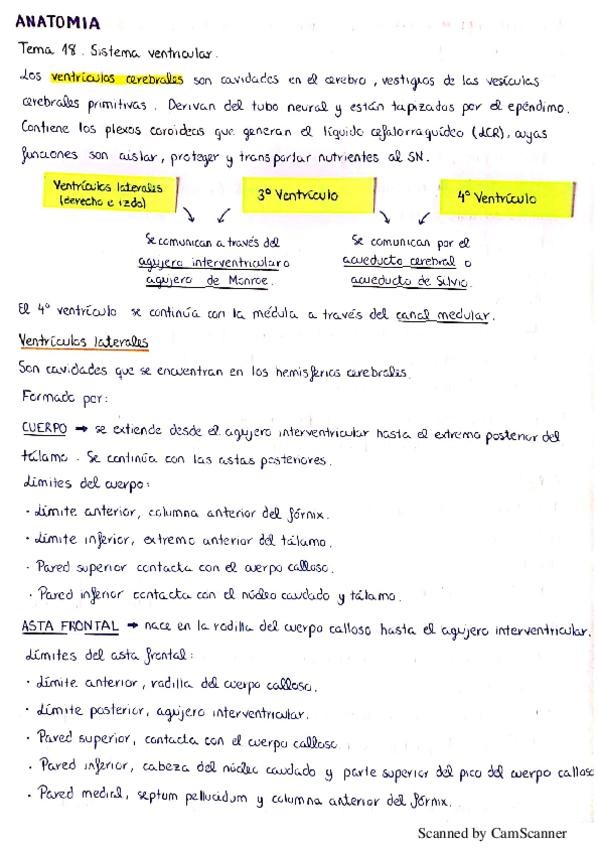 ANATOMIA
Tema 18. Sistema ventricular.
Los ventrículos cerebrales son cavidades en el cerebro, vestigios de las vesículas
cerebrales primitivas. Derivan del tubo neural y están tapizados por el epéndimo.
Contiene los plexos coroideos que generan el líquido cefalorraquídeo (LCR), cuyas
funciones son aislar, proteger y transportar nutrientes al SN.
Ventrículos laterales
(derecho e izdo)
3º Ventrículo
4º Ventrículo
Se comunican a través del
agujero interventricular o
agujero de Monroe.
Se comunican por el
acueducto cerebral o
acueducto de Silvio.
El 4º ventrículo se continúa con la médula a través del canal medular.
Ventrículos laterales
Son cavidades que se encuentran en los hemisferios cerebrales.
Formado por:
CUERPO → se extiende desde el agujero interventricular hasta el extremo posterior del
tálamo. Se continúa con las astas posteriores.
Límites del cuerpo:
· Límite anterior, columna anterior del fórnix.
· Límite inferior, extremo anterior del tálamo.
· Pared superior contacta con el cuerpo calloso.
· Pared inferior contacta con el núcleo caudado y tálamo.
ASTA FRONTAL → nace en la rodilla del cuerpo calloso hasta el agujero interventricular.
Límites del asta frontal:
· Límite anterior, rodilla del cuerpo calloso.
· Límite posterior, agujero interventricular.
· Pared superior, contacta con el cuerpo calloso.
· Pared inferior, cabeza del núcleo caudado y parte superior del pico del cuerpo calloso
· Pared medial, septum pellucidum y columna anterior del fórnix.
Scanned by CamScanner